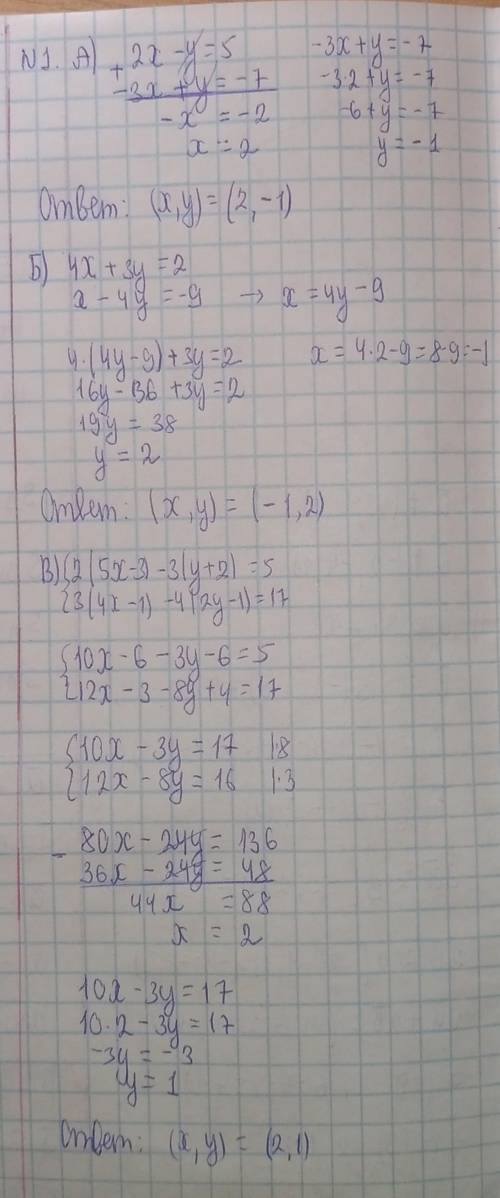 N1. А) + 2x - y = 5
-3x + y = -7
-x = -2
x = 2
-3x + y = -7
-3·2 + y = -7
-6 + y = -7
y = -1
Ответ: (x,y) = (2,-1)
Б) 4x + 3y = 2
x - 4y = -9 → x = 4y - 9
4·(4y-9) + 3y = 2
16y - 36 + 3y = 2
19y = 38
y = 2
x = 4·2-9 = 8-9 = -1
Ответ: (x,y) = (-1,2)
В) {2(5x-3) - 3(y+2) = 5
{3(4x-1) - 4(2y-1) = 17
{10x - 6 - 3y - 6 = 5
{12x - 3 - 8y + 4 = 17
{10x - 3y = 17 |·8
{12x - 8y = 16 |·3
- 80x - 24y = 136
36x - 24y = 48
44x = 88
x = 2
10x - 3y = 17
10·2 - 3y = 17
-3y = -3
y = 1
Ответ: (x,y) = (2,1)